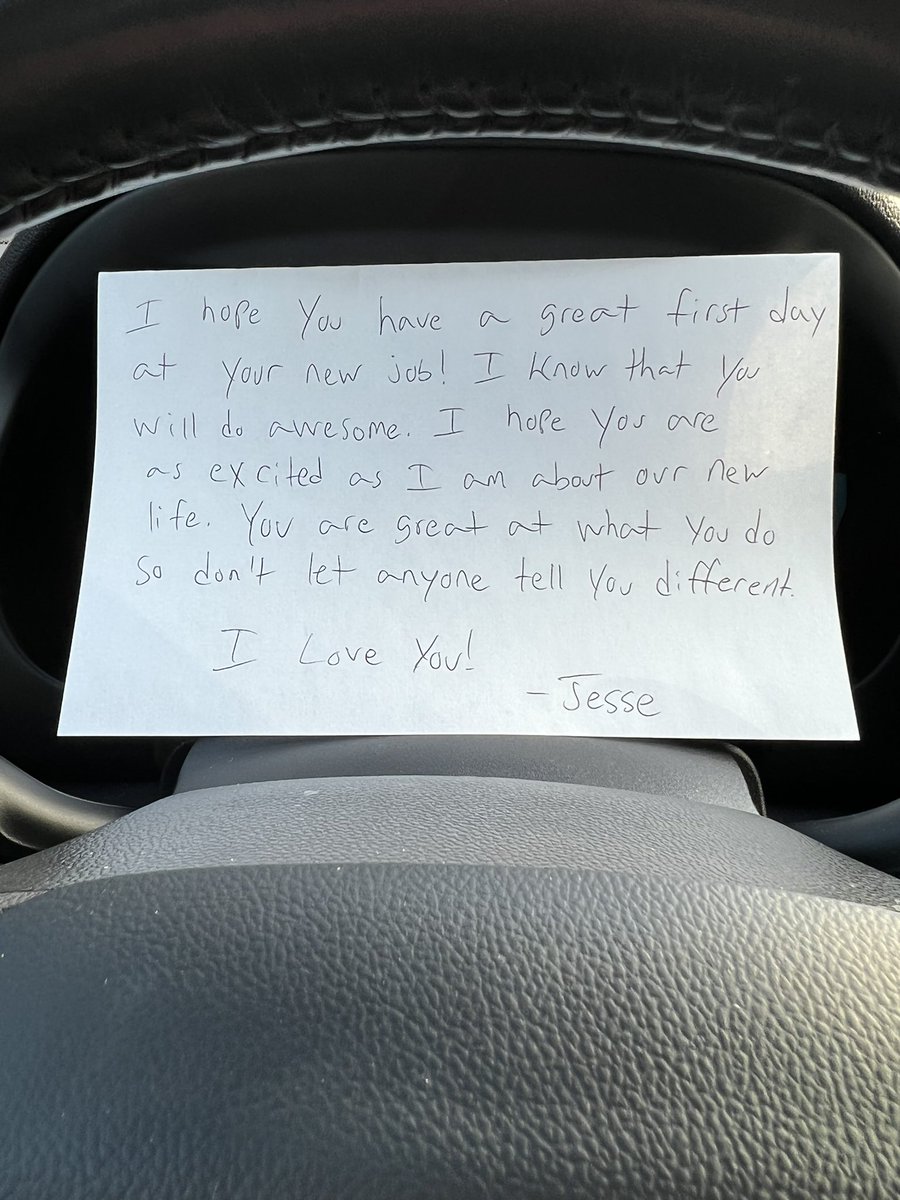 I hope you have a great first day
at your new job! I know that you
will do awesome. I hope you are
as excited as I am about our new
life. You are great at what you do
so don't let anyone tell you different.
I Love You!
- Jesse